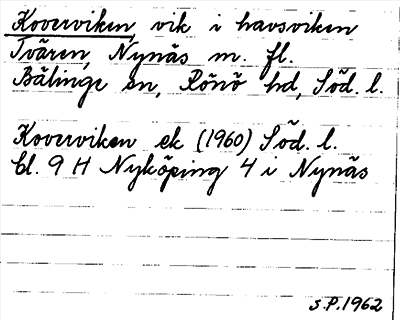 Koverviken, vik i havsviken
Tvären, Nynäs m. fl.
Bälinge sn, Rönö hd, Söd. l.
Koverviken ek (1960) Söd. l.
bl. 9 H Nyköping 4 i Nynäs
S.P. 1962